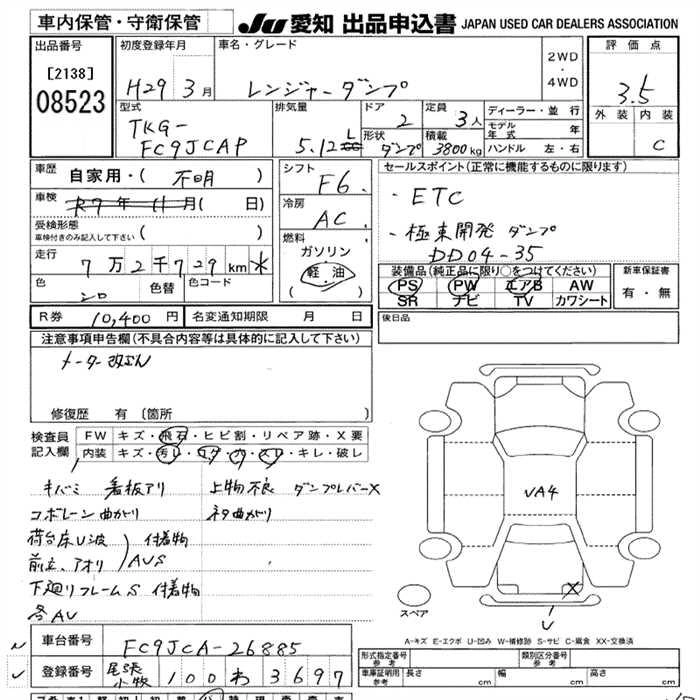 車内保管・守衛保管
JU 愛知 出品申込書 JAPAN USED CAR DEALERS ASSOCIATION
出品番号
[2138]
08523
初度登録年月
H29年 3月
車名・グレード
レンジャーダンプ
2WD
・
4WD
評価点
3.5
外装 内装
C
型式
TKG-
FC9JCAP
排気量
5.12L
ドア
2
定員
3人
形状
ダンプ
積載
3800kg
ディーラー・並行
モデル年式 年
ハンドル 左・右
車歴
自家用・( 不明 )
車検
R7年11月( 日)
受検形態
車検付きのみ記入して下さい ( )
走行
7万2千729km ※
色
シロ
色替
色コード
シフト
F6.
冷房
AC.
燃料
ガソリン
軽油
( )
セールスポイント(正常に機能するものに限ります)
・ETC
・極東開発 ダンプ
DD04-35
装備品(純正品に限り○をつけてください)
PS PW エアB AW
SR ナビ TV カワシート
新車保証書
有・無
R券 10,400円 名変通知期限 月 日
後日品
注意事項申告欄(不具合内容等は具体的に記入して下さい)
メーター改ざん
修復歴 有 〔箇所
検査員
記入欄
FW キズ・飛石・ヒビ割・リペア跡・X要
内装 キズ・汚レ・コゲ・穴・スレ・キレ・破レ
キバミ 看板アリ 上物不良 ダンプレバーX
コボレーン曲がり ネタ曲がり
荷台床U波 付着物
前立、アオリ AUS
下廻りフレームS 付着物
各AU
VA4
X
スペア
A-キズ E-エクボ U-凹み W-補修跡 S-サビ C-腐食 XX-交換済
車台番号 FC9JCA-26885
登録番号 尾張小牧 100 わ 3697
形式指定番号
参考
類別区分番号
参考
車庫証明用
参考
長さ cm 幅 cm 高さ cm